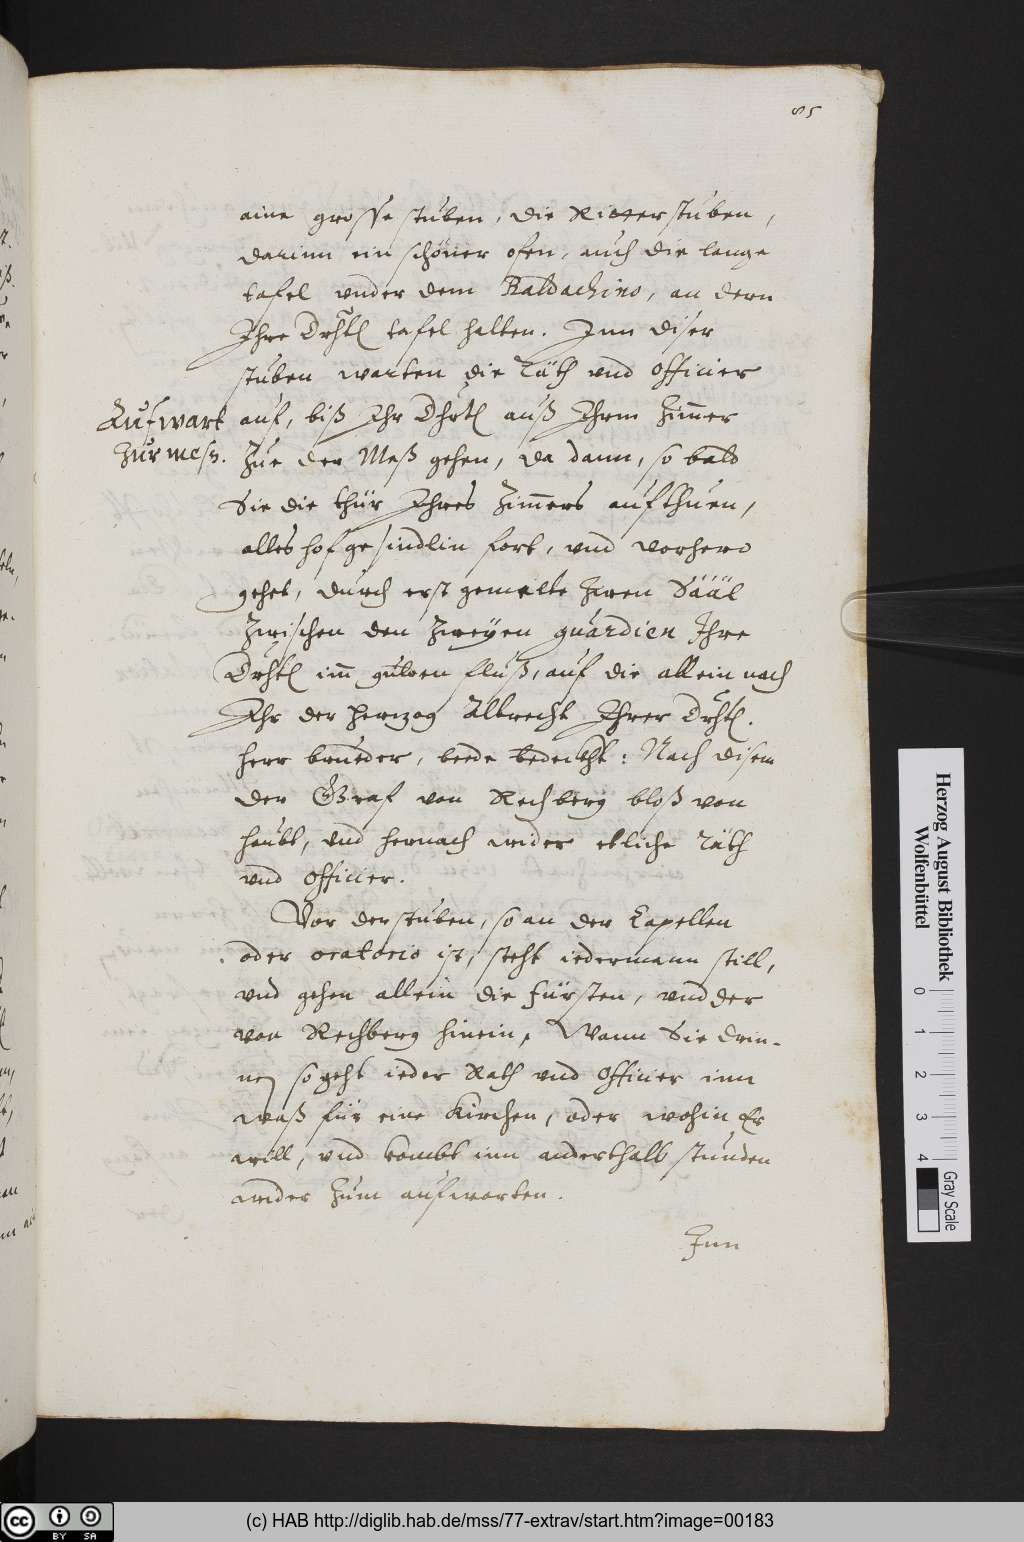 85
aine grosse stuben, die Ritterstuben,
darinn ein schöner ofen, auch die lange
tafel vnder dem Baldachino, an dern
Ihre Drhtl tafel halten. Inn diser
stuben warten die Räth vnd Officier
Aufwart
zur mess.
auf, biß Ihr Dhrtl auß Ihrem Zim̄er
Zue der Meß gehen, da dann, so bald
Sie die thür Ihres Zim̄ers aufthuen,
alles hofgesindlin fort, vnd vorhero
gehet, durch erst gemelte zwen Sääl
Zwischen den zweyen guardien Ihre
Drhtl im̄ gulden fluß, auf die allein nach
Ihr der Hertzog Albrecht Ihrer Drhtl.
herr brueder, beede bedeckht: Nach disem
der Graf von Rechberg bloß von
haubt, vnd hernach wider etliche Räth
vnd Officier.
Vor der stuben, so an der Capellen
oder oratorio ist, steht iedermann still,
vnd gehen allein die fürsten, vnd der
von Rechberg hinein, Wann Sie drin-
nen so geht ieder Rath vnd Officier inn
waß für eine Kirchen, oder wohin Er
will, vnd kombt inn anderthalb stunden
wider zum aufwarten.
Inn
Herzog August Bibliothek
Wolfenbüttel
0 1 2 3 4
Gray Scale
cc BY SA
(c) HAB http://diglib.hab.de/mss/77-extrav/start.htm?image=00183